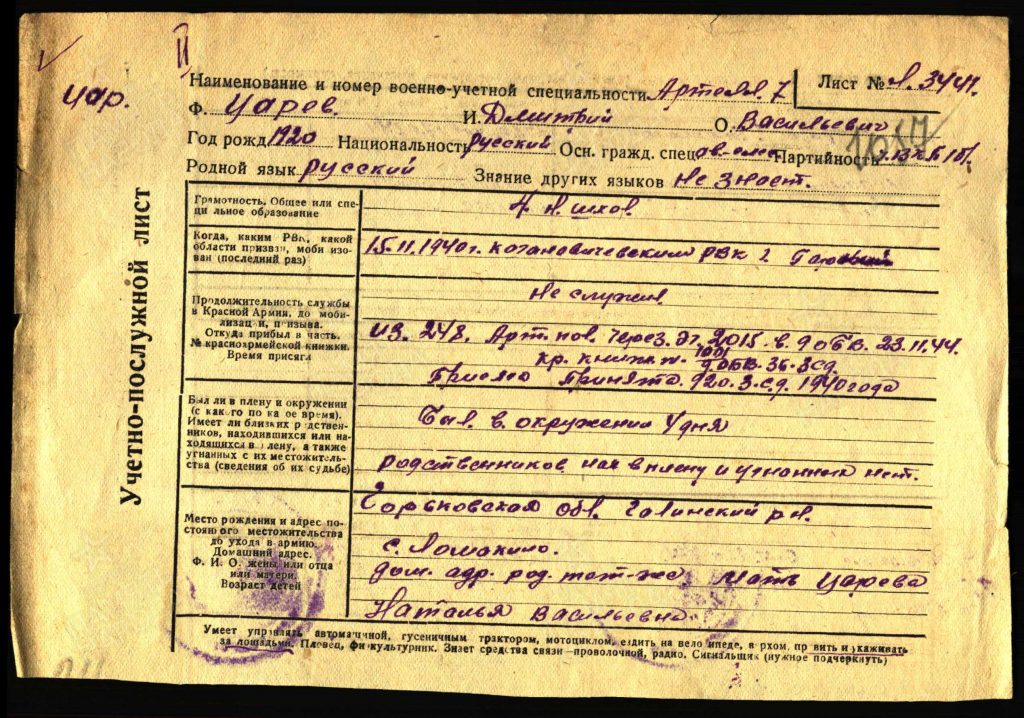 II
цар.
Учетно-послужной лист
Наименование и номер военно-учетной специальности 7
Лист № Л. 3441.
Ф. Царев. И. Дмитрий О. Васильевич
Год рожд 1920 Национальность русский Осн. гражд. спец Партийность
Родной язык русский Знание других языков не знает.
Грамотность, Общее или специ льное образование
4
Когда, каким РВК, какой области призван, моби изован (последний раз)
15.11.1940г. Когановичевским РВК г.
Продолжительность службы в Красной Армии, до мобилизаци, призыва. Откуда прибыл в часть. № красноармейской книжки. Время присяги
не служил
из. 248. Арт. через. 2015. в. 9 ОБВ. 23.11.44.
кр. книжка 1001 9 ОБВ. 36. З сд.
Присяга Принята. 920. З. сд. 1940 года
Был ли в плену и окружении (с как го по ка ое время). Имеет ли близких р дственников, находившихся или находящихся в лену, а также угнанных с их местожительства (сведения об их судьбе)
Был. в. окружении 4 дня
родственников нах в плену и угнанных нет.
Место рождения и адрес постоян ого местожительства до ухода в армию. Домашний адрес. Ф. И. О. жены или отца или матери. Возраст детей
Горьковская Обл. Гагинский р-н.
с. Ломакино.
дом. адр. род. тот-же Мать Царева
Наталья Васильевна
Умеет управлять автомашиной, гусеничным трактором, мотоциклом, ездить на вело ипеде, в рхом, пр вить и ухаживать
за лошадьми. Пловец, фи культурник. Знает средства связи—проволочной, радио. Сигнальщик (нужное подчеркнуть)